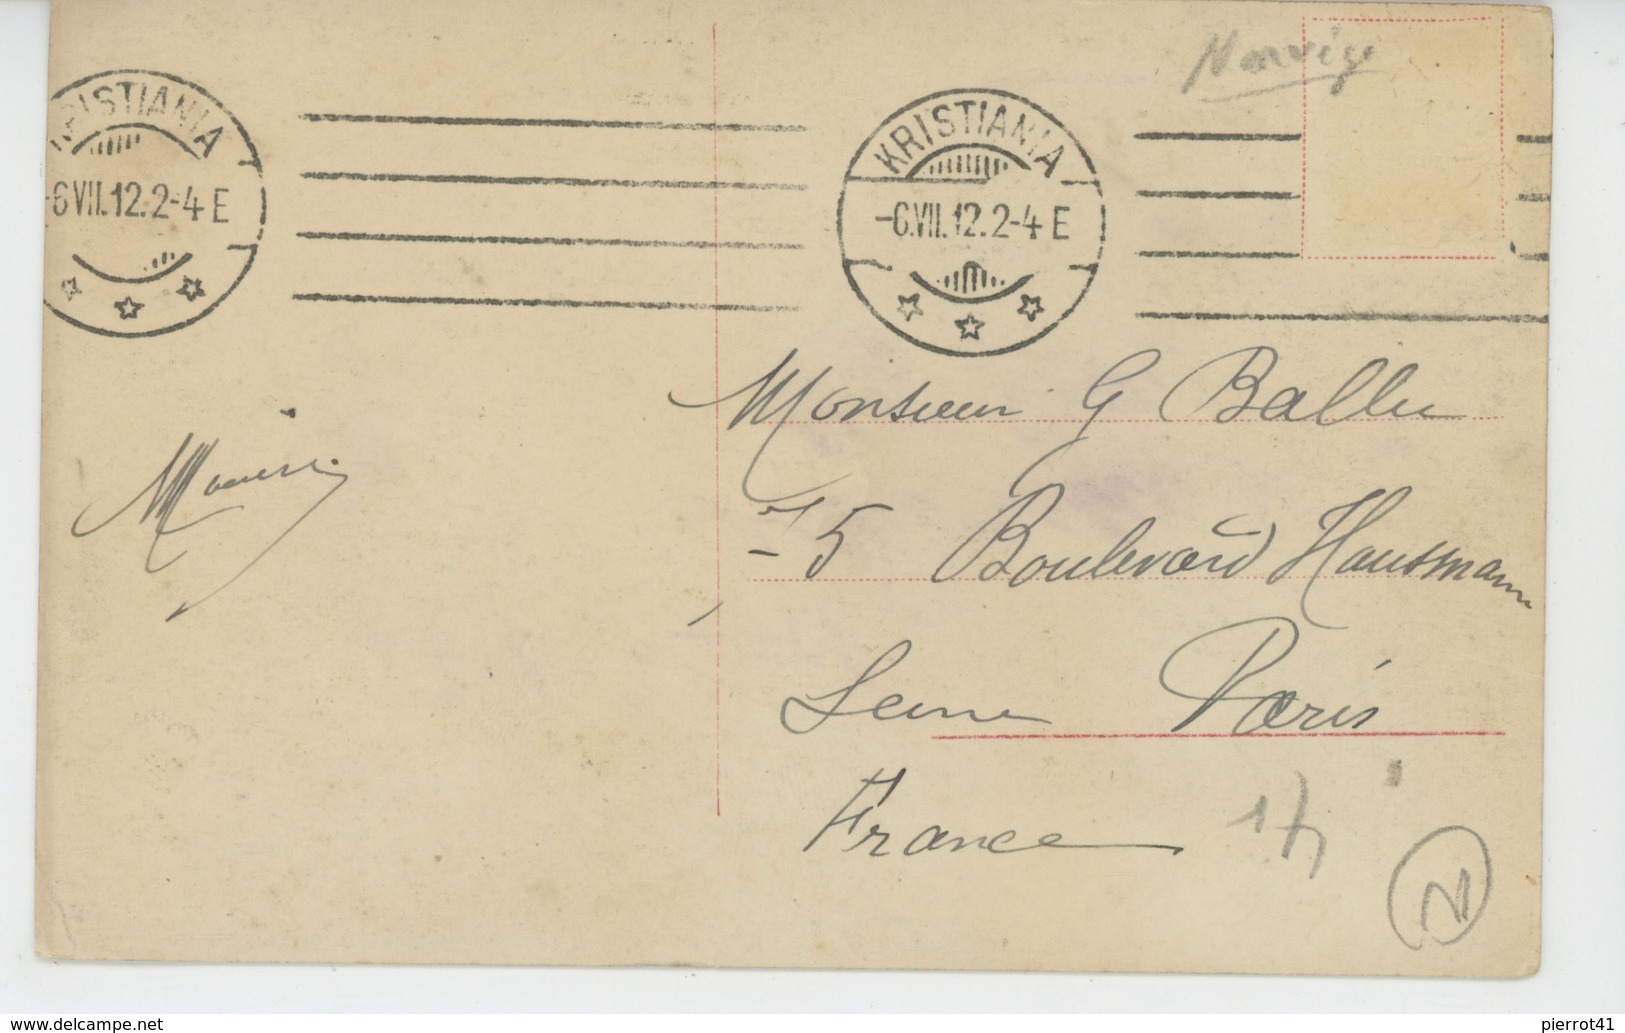 Norvège
KRISTIANIA
-6.VII.12.2-4 E
KRISTIANIA
-6.VII.12.2-4 E
Monsieur G Ballu
75 Boulevard Haussmann
Seine Paris
France
www.delcampe.net
pierrot41